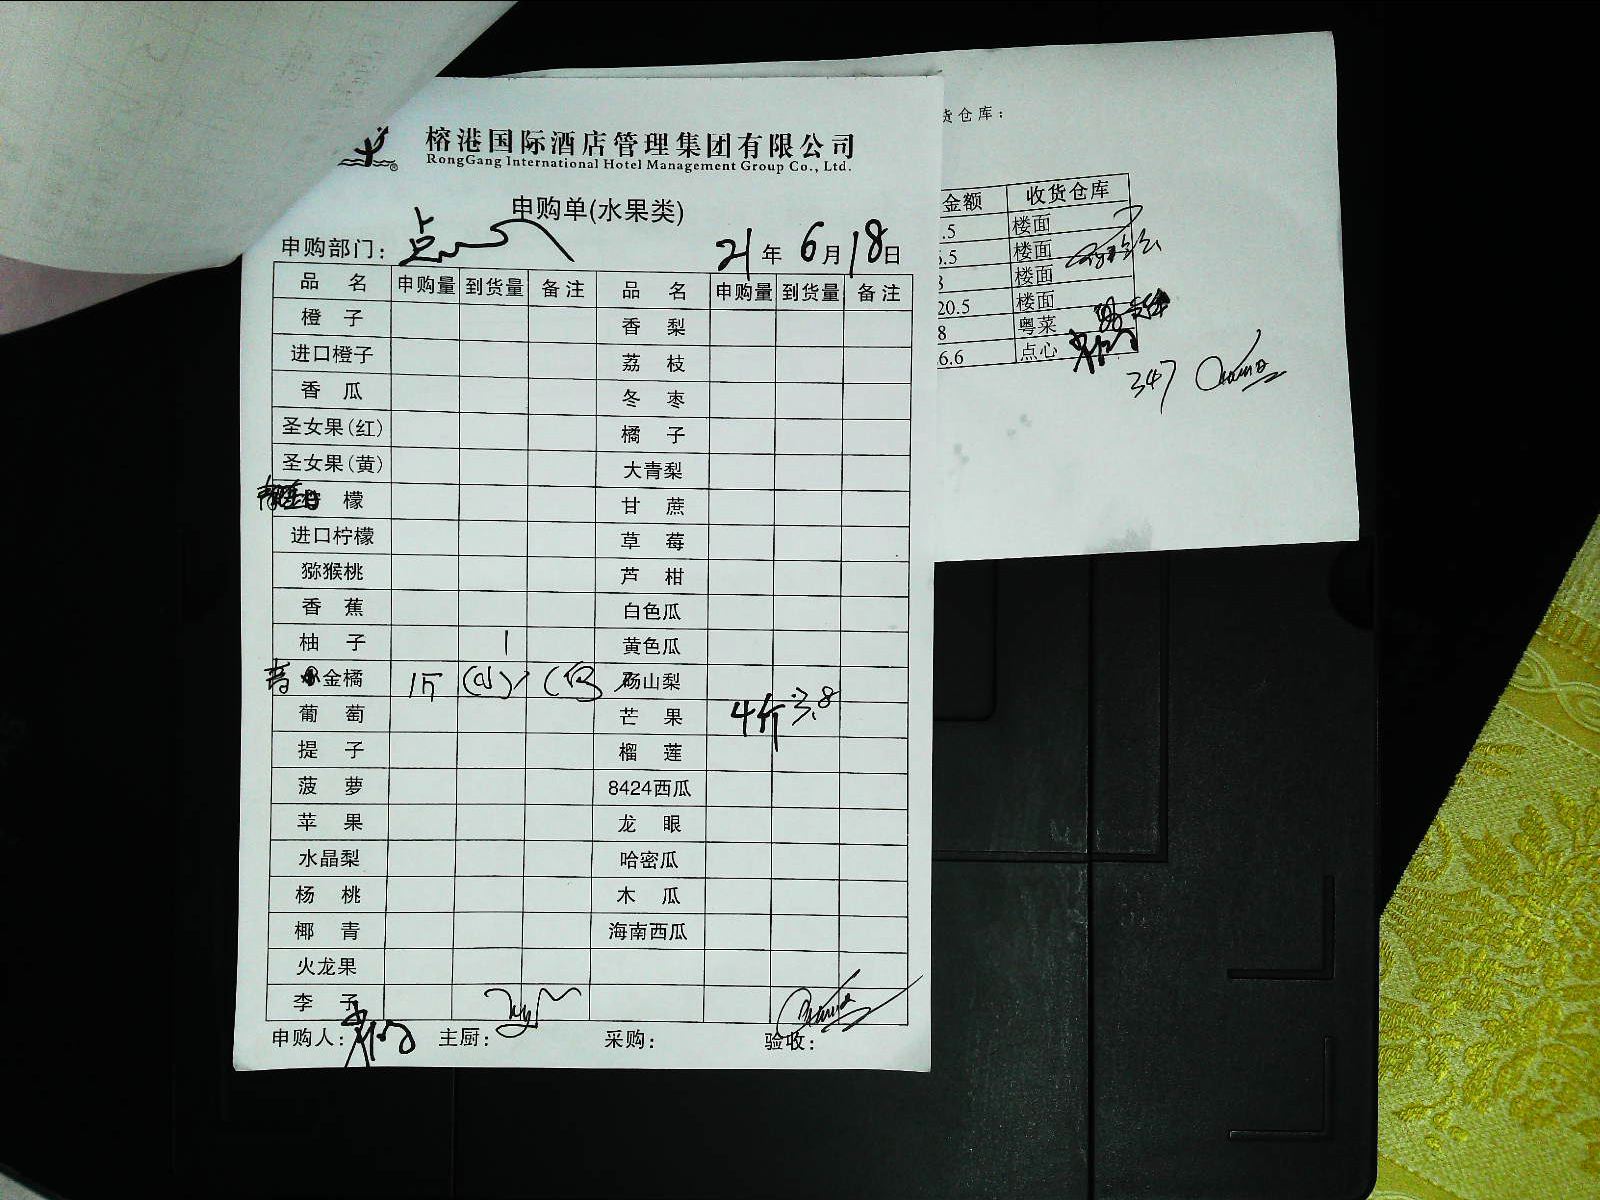 榕港国际酒店管理集团有限公司
RongGang International Hotel Management Group Co., Ltd.
申购单(水果类)
申购部门: 点 21 年 6 月 18 日
品 名 申购量 到货量 备注 品 名 申购量 到货量 备注
橙 子 香 梨
进口橙子 荔 枝
香 瓜 冬 枣
圣女果(红) 橘 子
圣女果(黄) 大青梨
檬 甘 蔗
进口柠檬 草 莓
猕猴桃 芦 柑
香 蕉 白色瓜
柚 子 1 黄色瓜
青 金橘 1斤 砀山梨
葡 萄 芒 果 4斤 3.8
提 子 榴 莲
菠 萝 8424西瓜
苹 果 龙 眼
水晶梨 哈密瓜
杨 桃 木 瓜
椰 青 海南西瓜
火龙果
李 子
申购人: 主厨: 采购: 验收:
货仓库:
金额 收货仓库
.5 楼面
.5 楼面
8 楼面
20.5 楼面
8 粤菜
6.6 点心
347